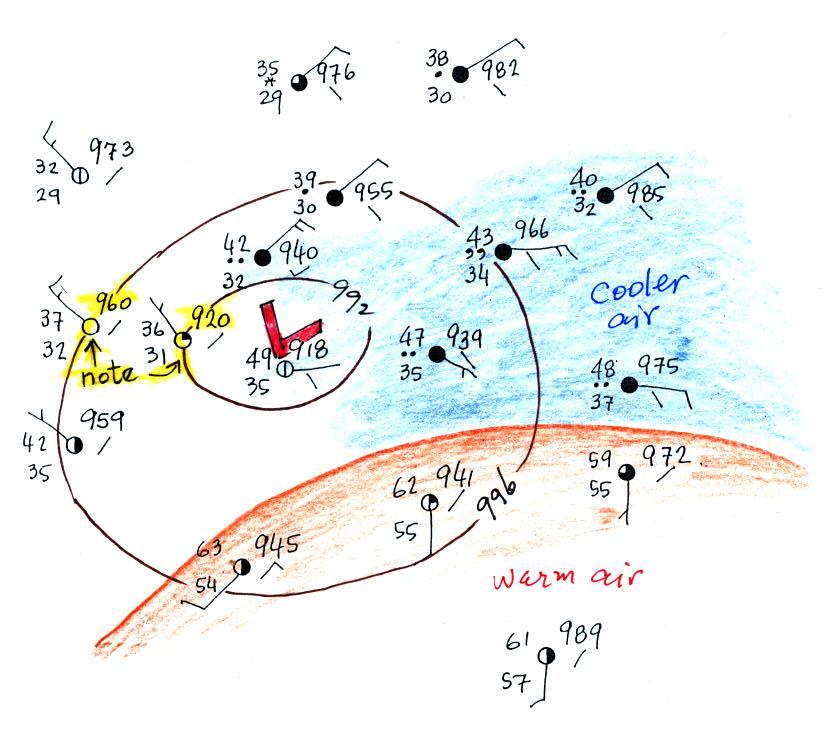 35 976
29
38 982
30
32 973
29
39 955
30
40 985
32
42 940
32
43 966
34
37 960
32
36 920
31
992
L
49 918
35
47 939
35
Cooler
air
48 975
37
note
42 959
35
62 941
55
996
59 972
55
63 945
54
Warm air
61 989
57